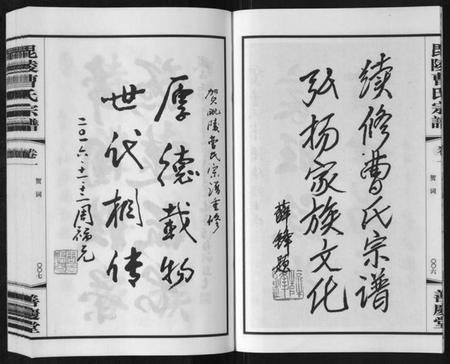 毘陵曹氏宗譜
卷一
賀詞
〇〇六
善慶堂
續修曹氏宗譜
弘扬家族文化
薛锋题
贺毗陵曹氏宗谱重修
厚德载物
世代相传
二〇一六·十一·十二周福元
毘陵曹氏宗譜
卷一
賀詞
〇〇七
善慶堂